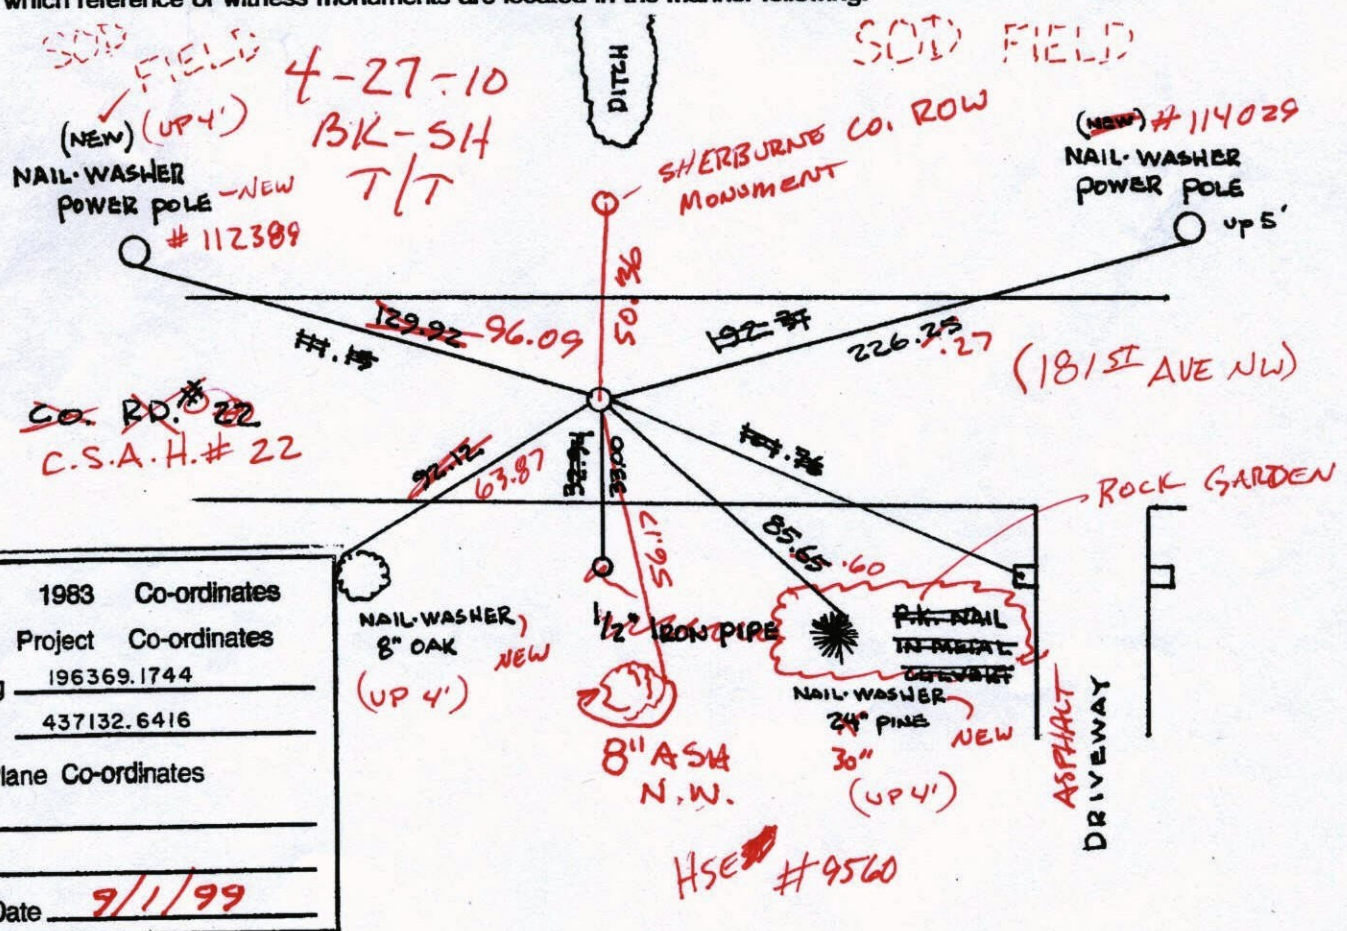 which reference or witness monuments are located in the manner following:
SOD FIELD
4-27-10
BK-SH
T/T
DITCH
SOD FIELD
(NEW) (UP 4')
NAIL-WASHER
POWER POLE -NEW
# 112389
SHERBURNE CO. ROW
MONUMENT
(NEW) # 114029
NAIL-WASHER
POWER POLE
up 5'
129.92 96.09
50.36
192.37
226.25 .27
(181ST AVE NW)
CO. RD. # 22
C.S.A.H. # 22
92.12 63.87
33.00
56.17
85.65 .60
ROCK GARDEN
NAIL-WASHER
8" OAK NEW
(UP 4')
1/2" IRON PIPE
8" ASH
N.W.
P.K. NAIL
IN METAL
CULVERT
NAIL-WASHER
24" PINE NEW
30"
(UP 4')
ASPHALT
DRIVEWAY
HSE #9560
1983 Co-ordinates
Project Co-ordinates
196369.1744
437132.6416
lane Co-ordinates
Date 9/1/99